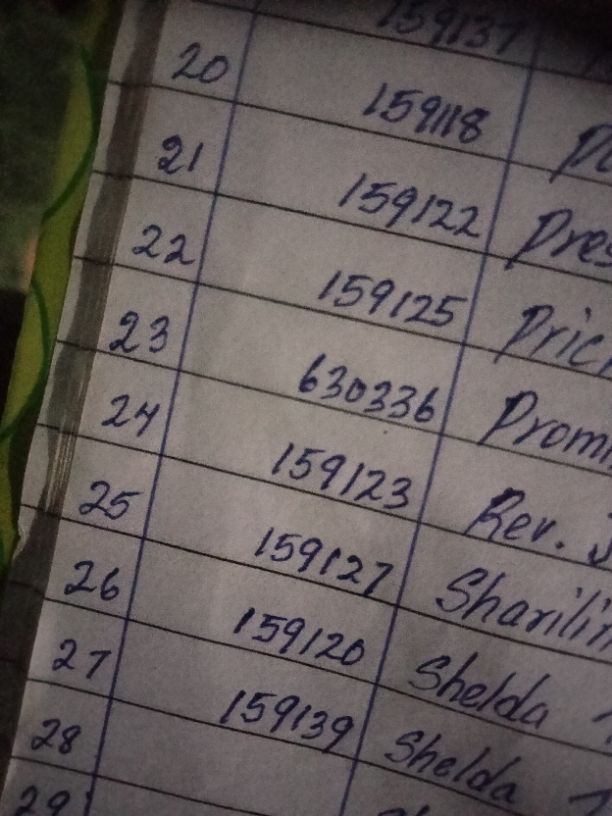 159137
20 159118
21 159122 Pres
22 159125 Pric
23 630336 Prom
24 159123 Rev.
25 159127 Sharilin
26 159120 Shelda
27 159139 Shelda
28
29